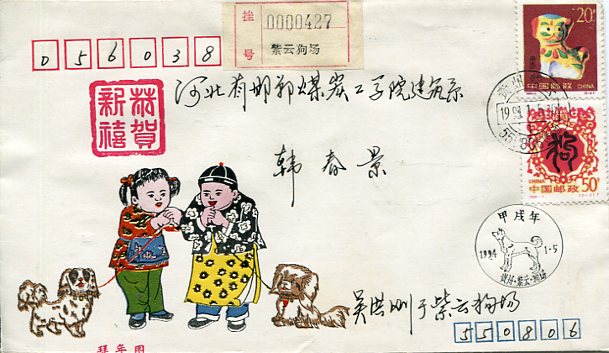 056038
挂号
0000427
紫云狗场
20分
中国邮政
恭贺新禧
河北省邯郸煤炭工学院建筑系
韩春景
1994.1.5
狗
CHINA
50分
中国邮政
甲戌年
1994
1.5
贵州·紫云·狗场
吴洪刚于紫云狗场
550806
拜年图